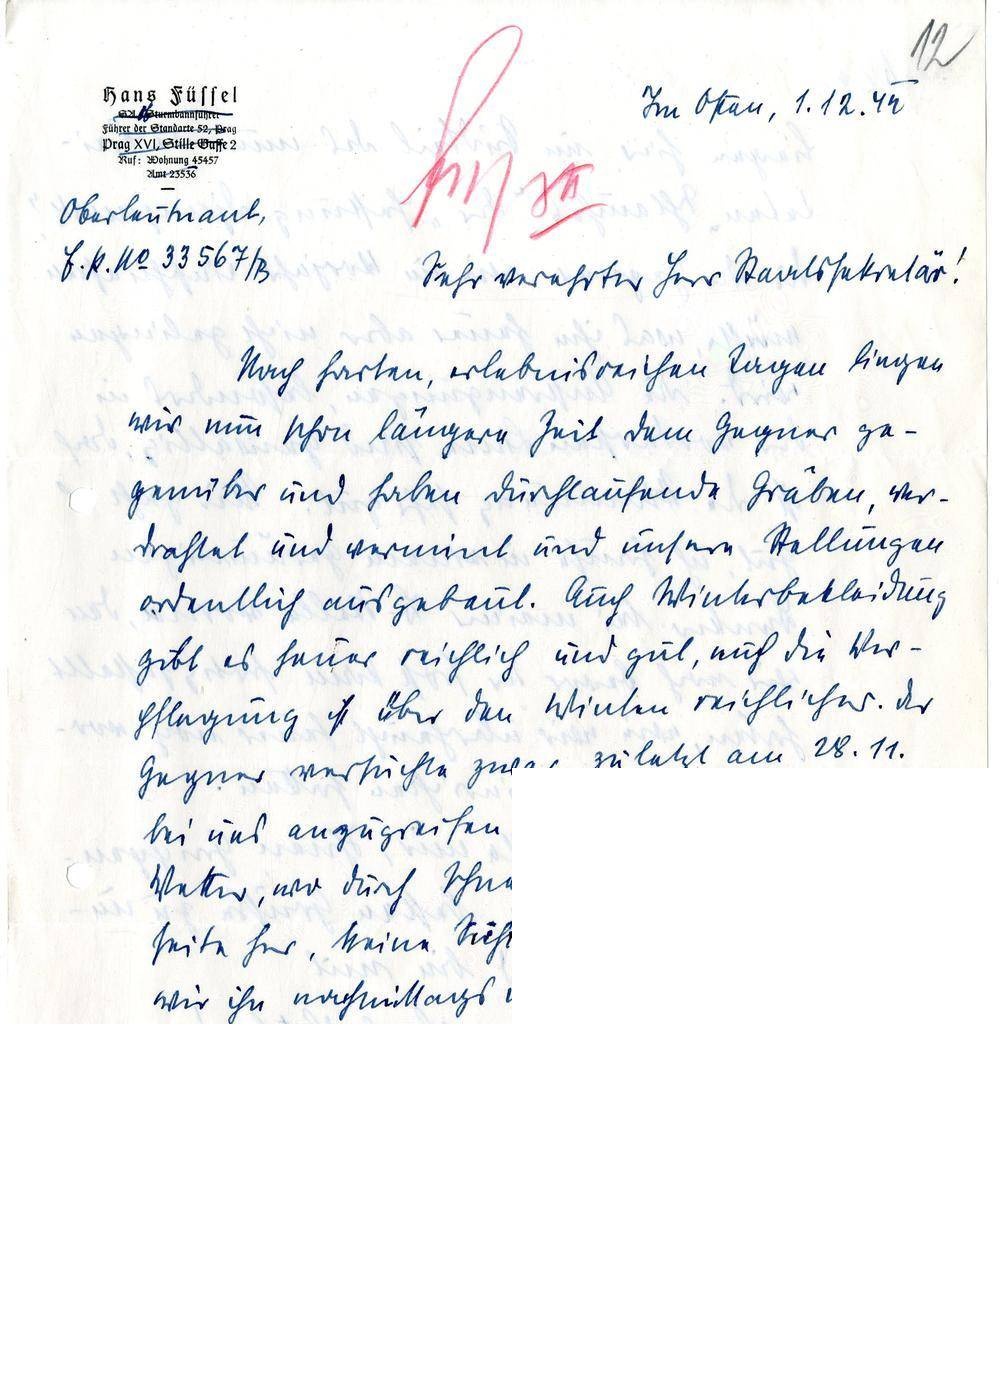 12
Hans Füssel
SA Sturmbannführer
Führer der Standarte 52, Prag
Prag XVI, Stille Gasse 2
Ruf: Wohnung 45457
Amt 23536
Im Osten, 1.12.42
Oberleutnant,
F.P. No 33567/B
Sehr verehrter Herr Staatssekretär!
Nach harten, erlebnisreichen Tagen liegen
wir nun schon längere Zeit dem Gegner ge-
genüber und haben durchlaufende Gräben, ver-
drahtet und vermint und unsere Stellungen
ordentlich ausgebaut. Auch Winterbekleidung
gibt es heuer reichlich und gut, auch die Ver-
pflegung ist über den Winter reichlicher. Der
Gegner versuchte zwar zuletzt am 28.11.
bei uns anzugreifen
Wetter, wo durch
seits her, keine Sicht
wir ihn nachmittags